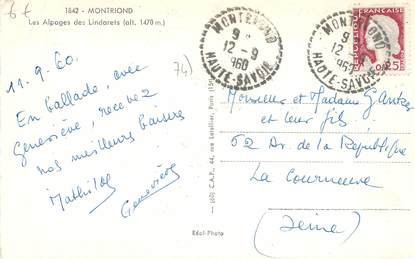 1842 - MONTRIOND
Les Alpages des Lindarets (alt. 1470 m.)
11.9.60.
En ballade, avec
Geneviève, recevez
nos meilleurs baisers
Mathilde
Geneviève
74)
MONTRIOND
9 H
12-9
1960
HAUTE-SAVOIE
MONTRIOND
9
12-9
1960
HAUTE-SAVOIE
FRANÇAISE
0.25
Monsieur et Madame
et leur fils
62 Av. de la République
La Courneuve
(Seine)
Edal-Photo